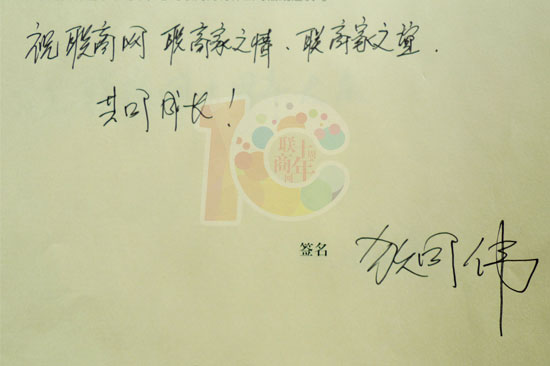 祝联商网 联商家之情、联商家之堂.
共同成长!
联商
十年
签名